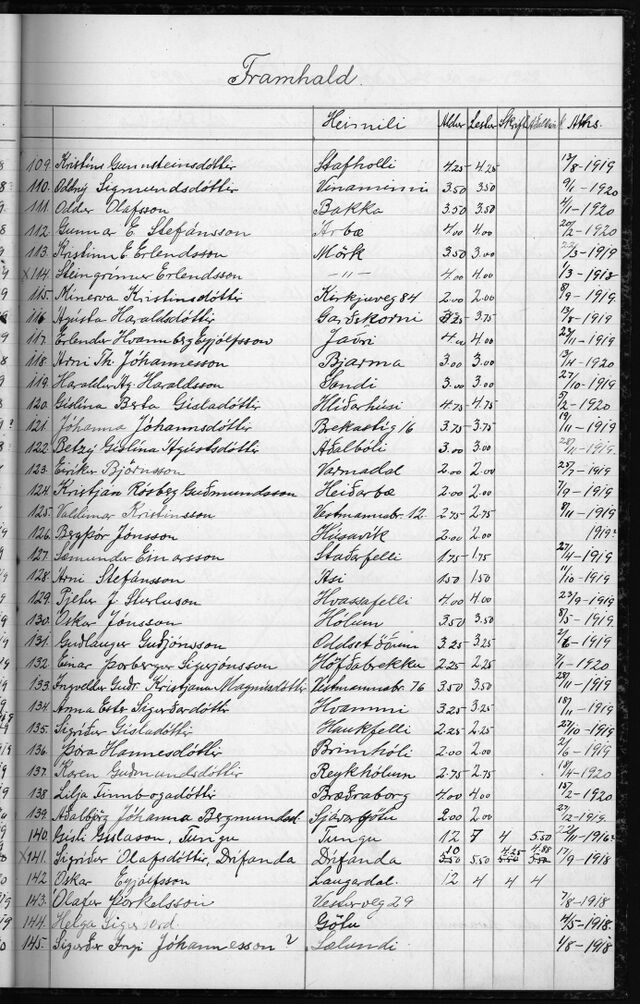 Framhald.
Heimili Aldur Lestur Skrift Aths.
109. Kristíns Gunnsteinsdóttir Stafholti 4.25 4.25 13/8-1919
110. Oddný Sigmundsdóttir Vinaminni 3.50 3.50 9/1-1920
111. Oddur Olafsson Bakka 3.50 3.50 4/1-1920
112. Gunnar E. Stefánsson Arbæ 4.00 4.00 20/2-1920
113. Kristinn E Erlendsson Mörk 3.50 3.50 22/3-1919
X114. Steingrímur Erlendsson -"- 4.00 4.00 1/3-1918
115. Minerva Kristinsdóttir Kirkjuveg 84 2.00 2.00 8/9-1919
116. Agústa Haraldsdóttir Garðskorni 3.25 3.75 13/8-1919
117. Erlendur Hvannberg Eyjólfsson Jaðri 4.00 4.00 23/11-1919
118. Arni Th. Jóhannesson Bjarma 3.00 3.00 13/4-1920
119. Haraldur Ág. Haraldsson Sandi 3.00 3.00 27/10-1919
120. Gislína Berta Gisladóttir Hlíðarhúsi 4.75 4.75 5/2-1920
121. Jóhanna Jóhannsdóttir Bekastíg 16 3.75 3.75 19/11-1919
122. Betzý Gislína Agústsdóttir Aðalbóli 3.00 3.00 28/11-1919
123. Eirikur Björnsson Varmadal 2.00 2.00 25/7-1919
124. Kristján Rósberg Guðmundsson Heiðarbæ 2.00 2.00 7/9-1919
125. Valdimar Kristinsson Vestmannabr. 12. 2.75 2.75 9/11-1919
126. Bergþór Jónsson Húsavík 2.00 2.00 1919?
127. Sæmundur Einarsson Staðarfelli 1.75 1.75 27/4-1919
128. Arni Stefánsson Asi 1.50 1.50 11/10-1919
129. Pjetur J. Sturluson Hvassafelli 4.00 4.00 23/9-1919
130. Oskar Jónsson Hólum 3.50 3.50 8/5-1919
131. Guðlaugur Guðjónsson Oddsstöðum 3.25 3.25 2/6-1919
132. Einar Þorbergur Sigurjónsson Höfðabrekku 2.25 2.25 7/1-1920
133. Ingveldur Guðr. Kristjana Magnúsdóttir Vestmannabr. 76 3.50 3.50 28/11-1919
134. Anna Ester Sigurðardóttir Hvammi 3.25 3.25 18/11-1919
135. Sigríður Gisladóttir Haukfelli 2.25 2.25 27/10-1919
136. Þóra Hannesdóttir Brimhóli 2.00 2.00 2/6-1919
137. Karen Guðmundsdóttir Reykhólum 2.75 2.75 18/4-1920
138. Lilja Finnbogadóttir Bræðraborg 4.00 4.00 15/2-1920
139. Aðalbjörg Jóhanna Bergmundsd. Sjávargötu 2.00 2.00 27/12-1919
140. Gísli Gislason, Tungu Tungu 12 7 4 5.50 22/11-1916?
X141. Sigríður Olafsdóttir, Drífanda Drífanda 10 3.50 5.50 4.25 5.50 4.88 3.50 17/9-1918
142. Oskar Eyjólfsson Laugardal. 12 4 4 4
143. Olafur Þorkelsson Vesturveg 29 7/8-1918
144. Helga Sigurðard. Götu 4/5-1918.
145. Sigurður Ingi Jóhannesson? Sælundi 4/8-1918